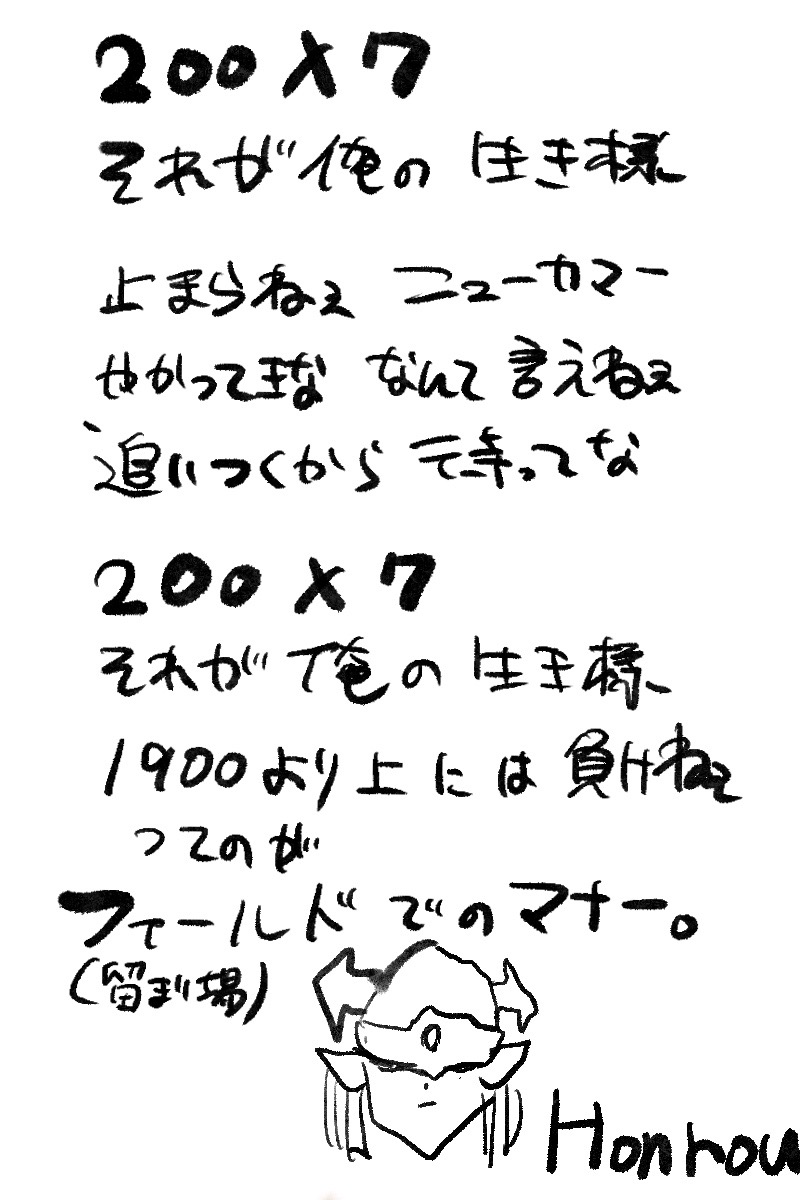 200×7
それが俺の 生き様
止まらねぇ ニューカマー
やかってきな なんて 言えねぇ
追いつくから 待ってな
200×7
それが俺の 生き様
1900より上には負けねぇ
ってのが
フィールドでのマナー。
(留まり場)
Honrou